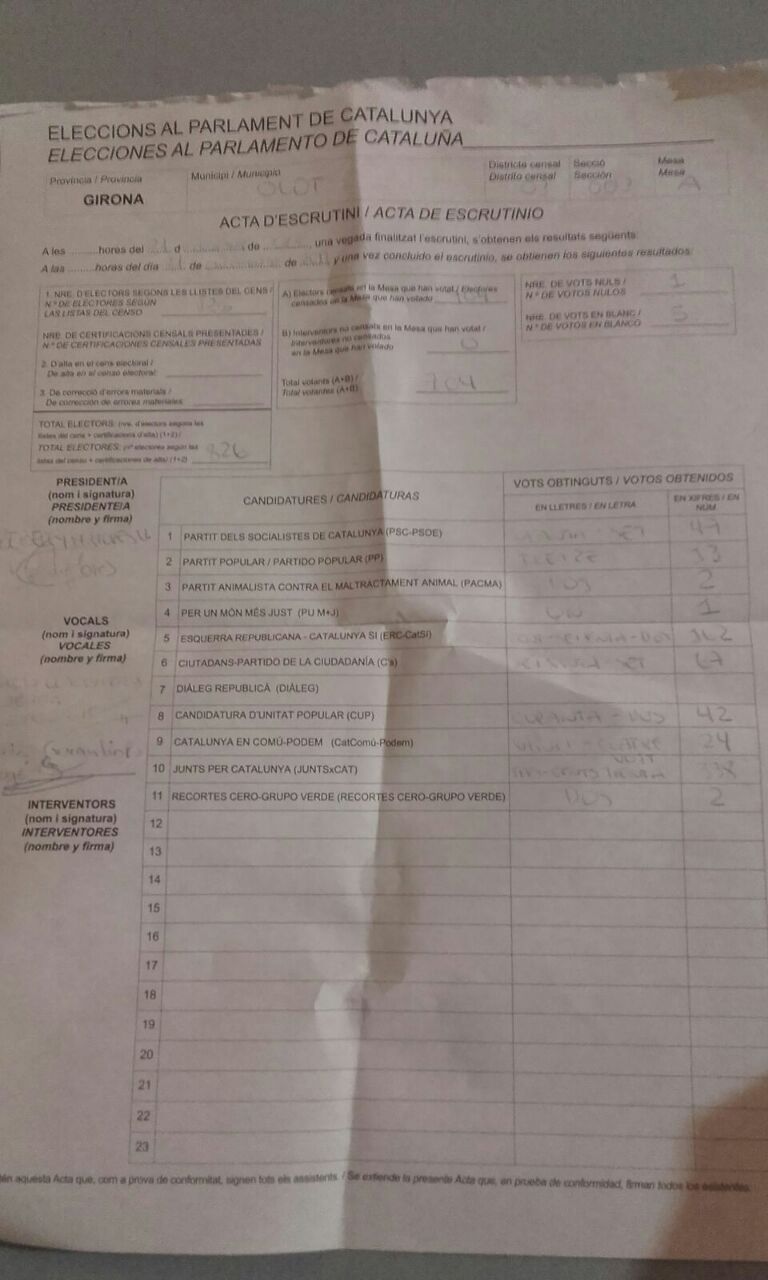 ELECCIONS AL PARLAMENT DE CATALUNYA
ELECCIONES AL PARLAMENTO DE CATALUÑA
Província / Provincia
Municipi / Municipio
Districte censal
Distrito censal
Secció
Sección
Mesa
Mesa
GIRONA
OLOT
A
ACTA D'ESCRUTINI / ACTA DE ESCRUTINIO
A les ......... hores del ......... d ......... de ........., una vegada finalitzat l'escrutini, s'obtenen els resultats següents:
A las ......... horas del día ......... de ......... de ......... y una vez concluido el escrutinio, se obtienen los siguientes resultados:
1. NRE. D'ELECTORS SEGONS LES LLISTES DEL CENS /
N.º DE ELECTORES SEGÚN
LAS LISTAS DEL CENSO
NRE. DE CERTIFICACIONS CENSALS PRESENTADES /
N.º DE CERTIFICACIONES CENSALES PRESENTADAS
2. D'alta en el cens electoral /
De alta en el censo electoral:
3. De correcció d'errors materials /
De corrección de errores materiales
TOTAL ELECTORS: (nre. d'electors segons les
llistes del cens + certificacions d'alta) (1+2) /
TOTAL ELECTORES: (nº electores según las
listas del censo + certificaciones de alta) (1+2)
826
A) Electors censats en la Mesa que han votat / Electores
censados en la Mesa que han votado
704
B) Interventors no censats en la Mesa que han votat /
Interventores no censados
en la Mesa que han votado
0
Total votants (A+B) /
Total votantes (A+B)
704
NRE. DE VOTS NULS /
N.º DE VOTOS NULOS
1
NRE. DE VOTS EN BLANC /
N.º DE VOTOS EN BLANCO
5
PRESIDENT/A
(nom i signatura)
PRESIDENTE/A
(nombre y firma)
VOCALS
(nom i signatura)
VOCALES
(nombre y firma)
INTERVENTORS
(nom i signatura)
INTERVENTORES
(nombre y firma)
CANDIDATURES / CANDIDATURAS
VOTS OBTINGUTS / VOTOS OBTENIDOS
EN LLETRES / EN LETRA
EN XIFRES / EN NÚM.
1 PARTIT DELS SOCIALISTES DE CATALUNYA (PSC-PSOE) 47
2 PARTIT POPULAR / PARTIDO POPULAR (PP) TRETZE 13
3 PARTIT ANIMALISTA CONTRA EL MALTRACTAMENT ANIMAL (PACMA) DOS 2
4 PER UN MÓN MÉS JUST (PU M+J) UN 1
5 ESQUERRA REPUBLICANA - CATALUNYA SÍ (ERC-CatSí) 162
6 CIUTADANS-PARTIDO DE LA CIUDADANÍA (C's) 67
7 DIÀLEG REPUBLICÀ (DIÀLEG)
8 CANDIDATURA D'UNITAT POPULAR (CUP) 42
9 CATALUNYA EN COMÚ-PODEM (CatComú-Podem) 24
10 JUNTS PER CATALUNYA (JUNTSxCAT) 338
11 RECORTES CERO-GRUPO VERDE (RECORTES CERO-GRUPO VERDE) DOS 2
12
13
14
15
16
17
18
19
20
21
22
23
aquesta Acta que, com a prova de conformitat, signen tots els assistents. / Se extiende la presente Acta que, en prueba de conformidad, firman todos los asistentes.